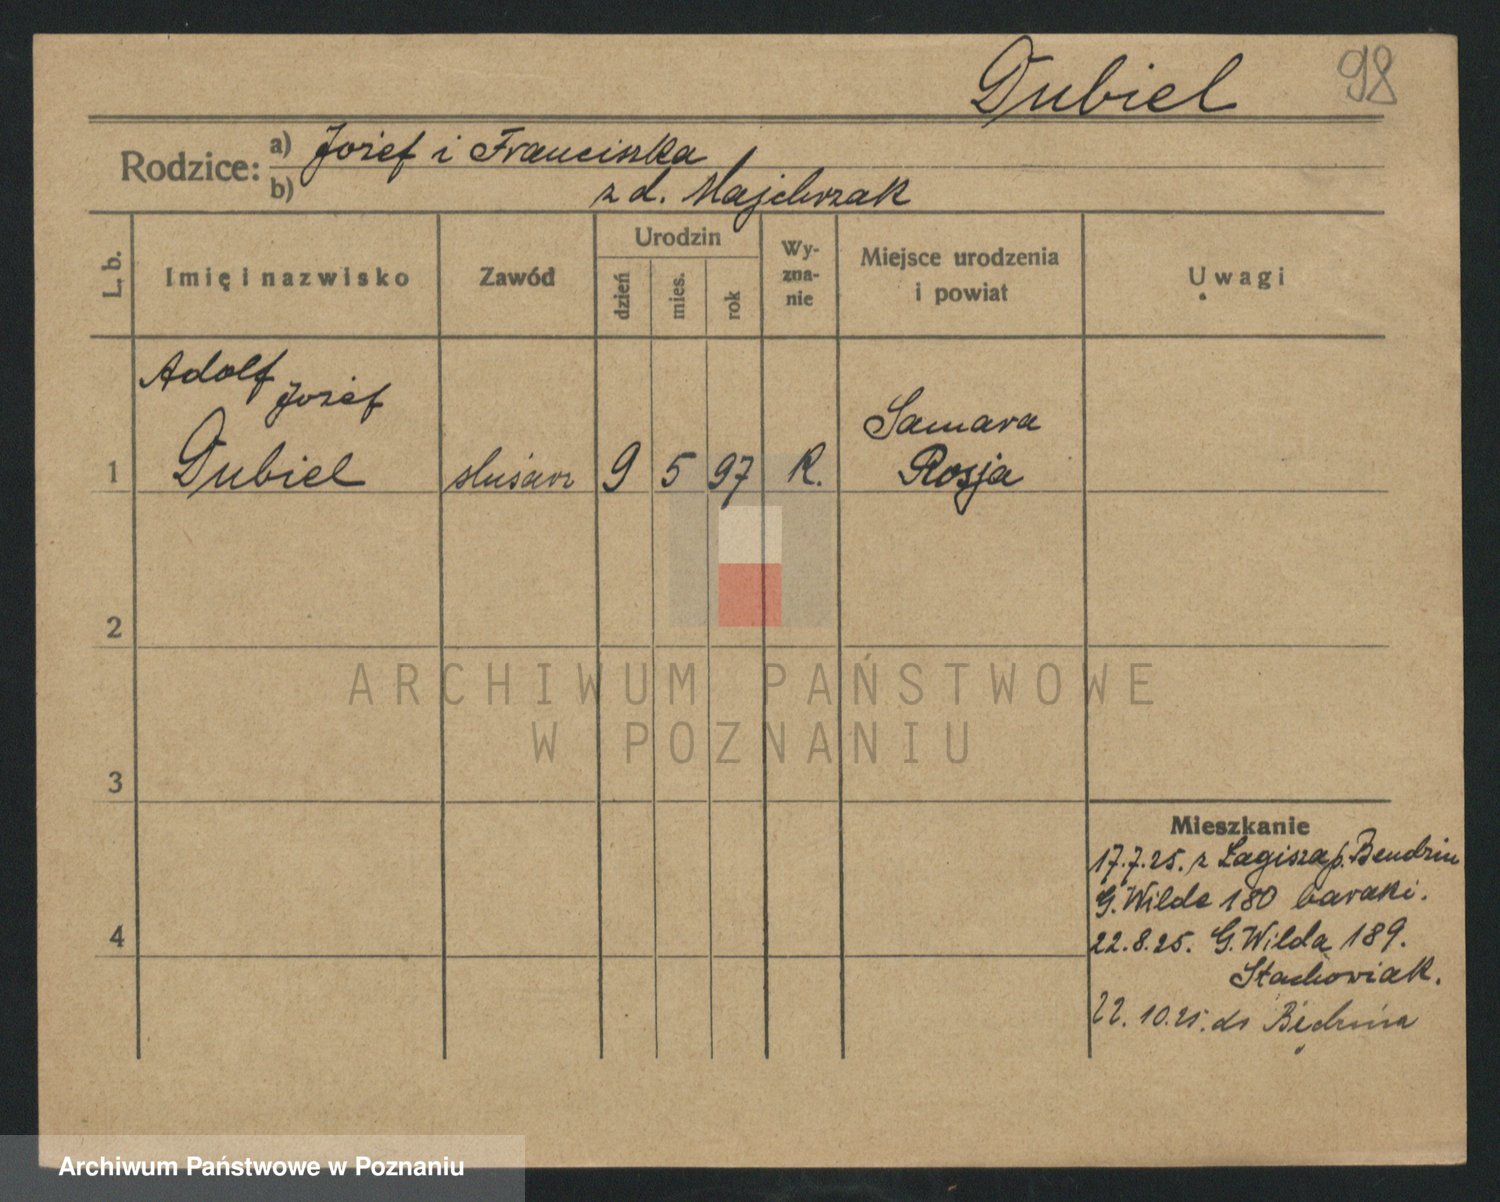 Dubiel 98
Rodzice: a) Józef i Franciszka
b) z d. Majchrzak
L. b.
Imię i nazwisko
Zawód
Urodzin
dzień
mies.
rok
Wy-
zna-
nie
Miejsce urodzenia
i powiat
Uwagi
Adolf
Józef
1 Dubiel ślusarz 9 5 97 R. Samara
Rosja
2
3
4
Mieszkanie
17.7.25. z Łagisza p. Bendzin
G. Wilda 180 baraki.
22.8.25. G. Wilda 189.
Stachowiak.
22.10.25. do Będzina
ARCHIWUM PAŃSTWOWE
W POZNANIU
Archiwum Państwowe w Poznaniu